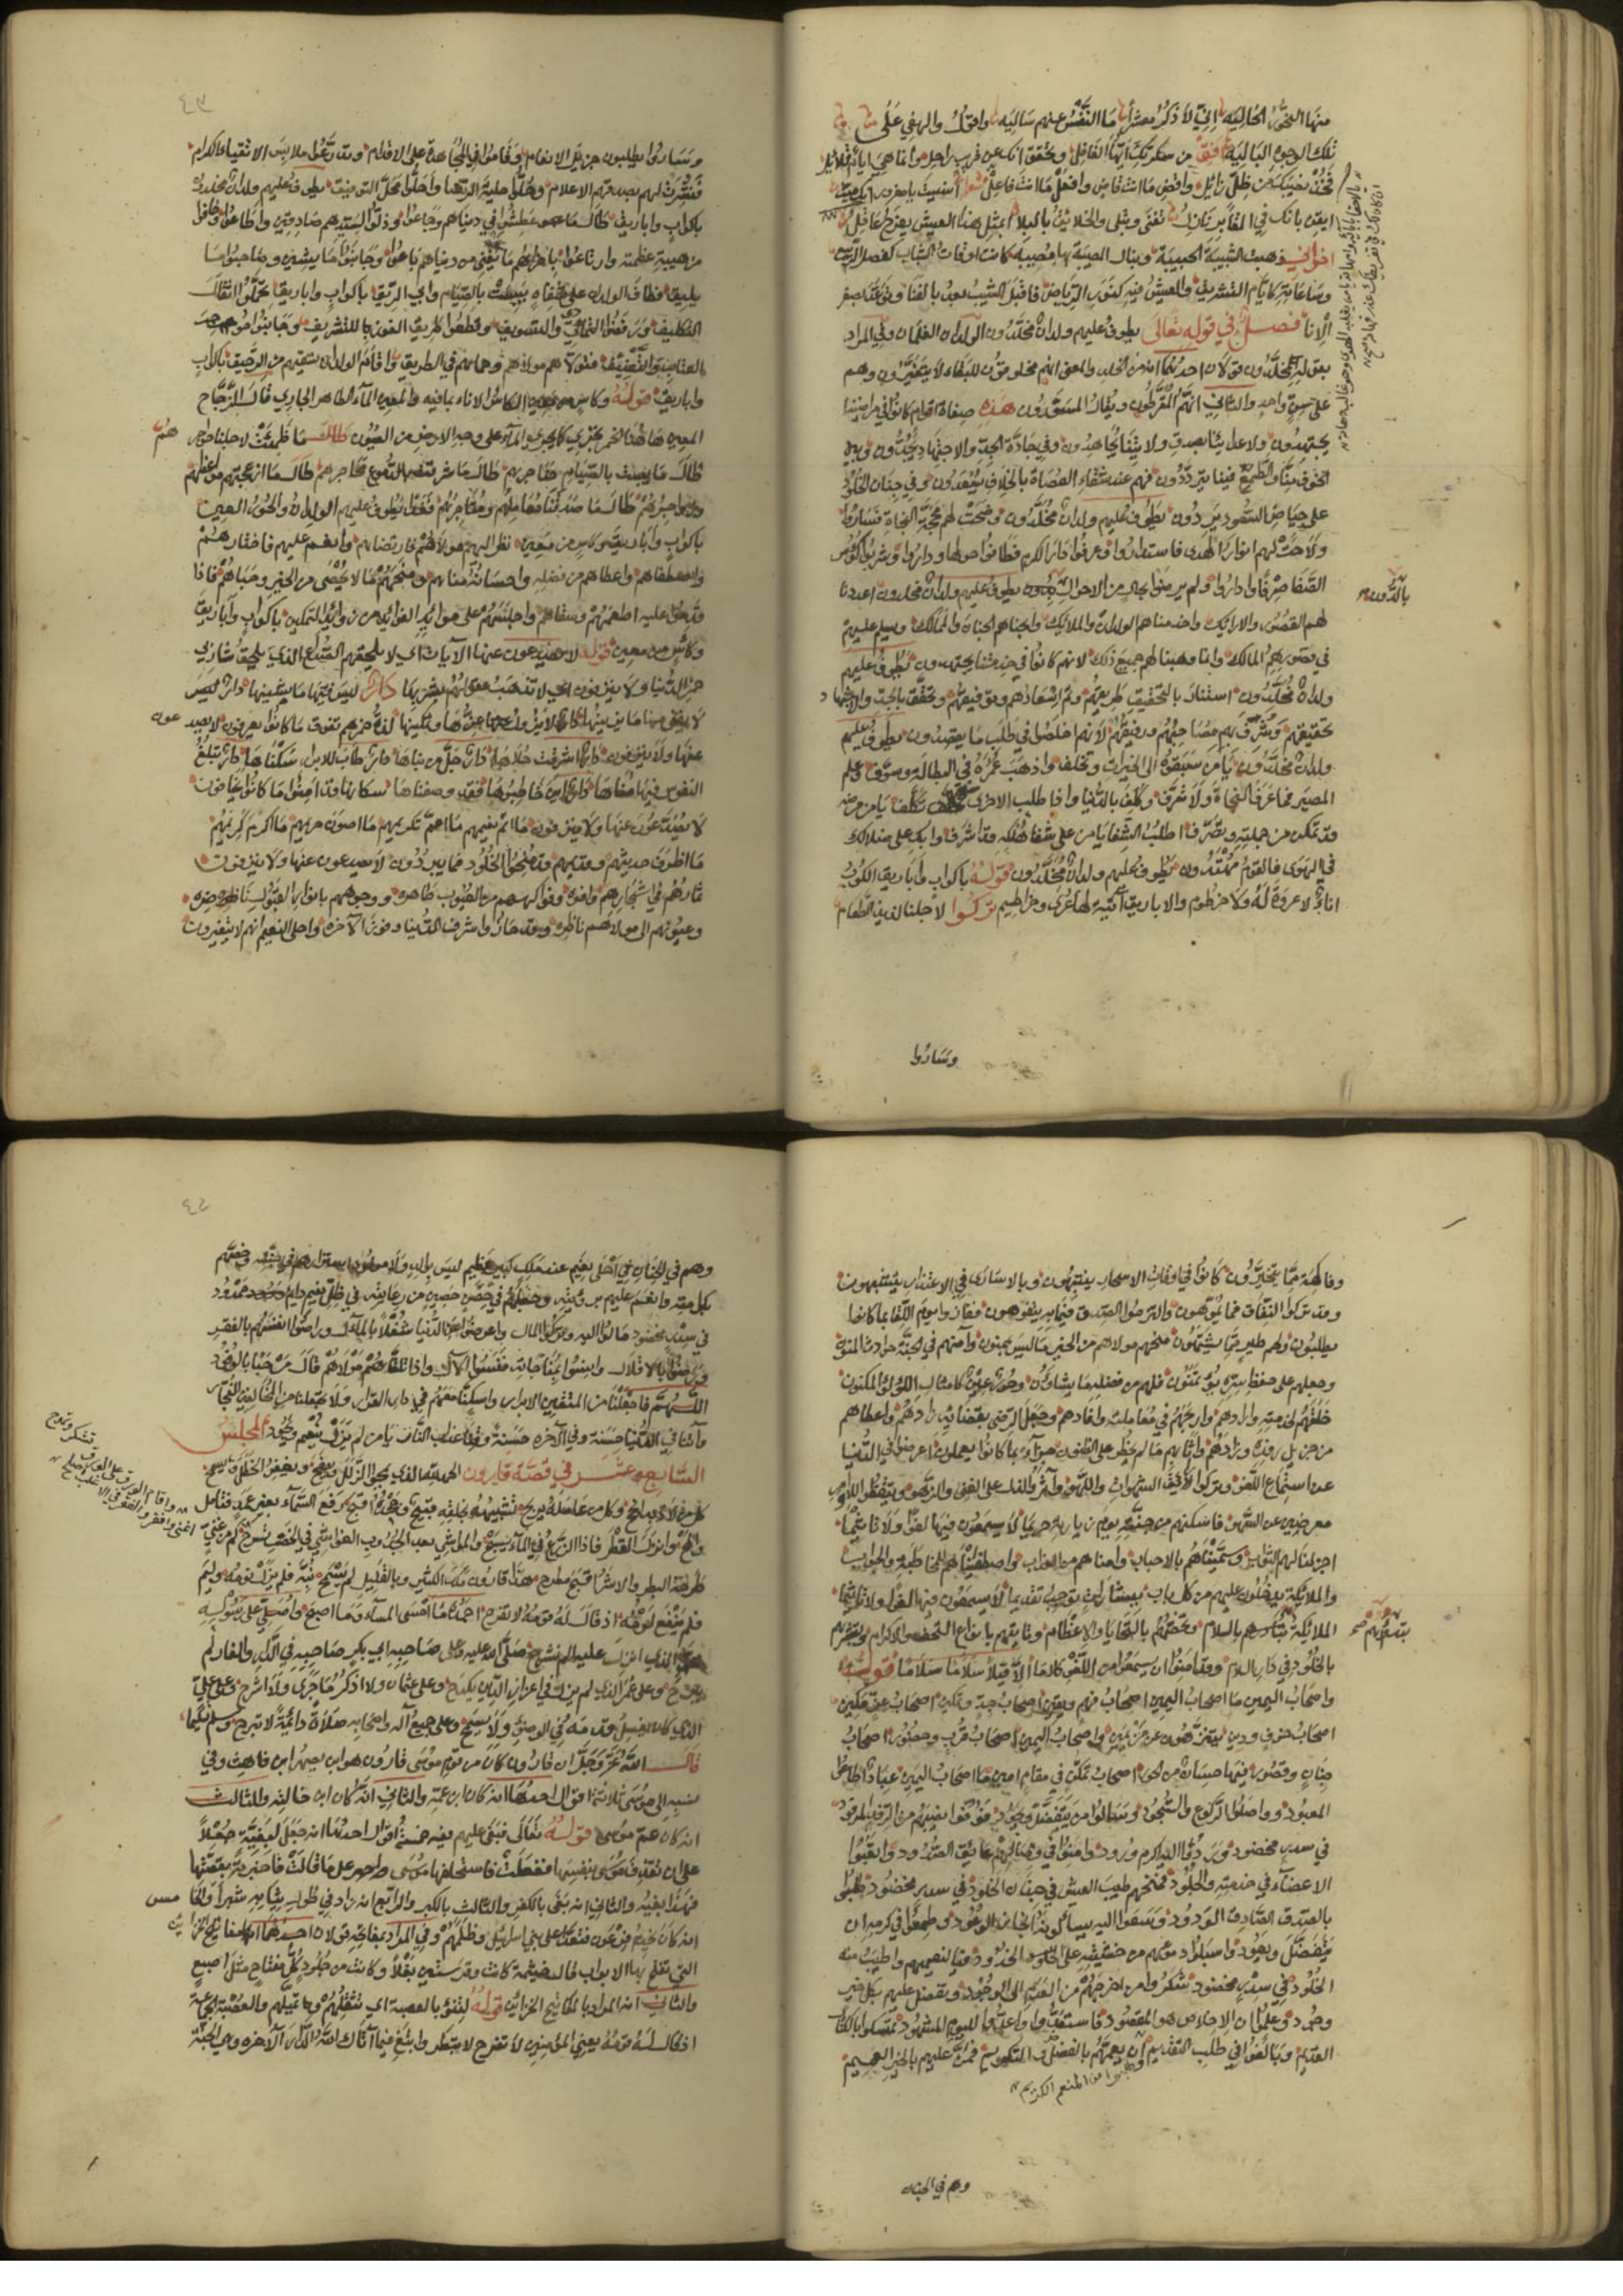 منها النحور الخالية اني لاذكر معشرا ما النفس عنهم سالية واقول والهفي على
تلك الوجوه البالية افق من سكرتك ايها الغافل وتحقق انك عن قريب راحل وانما هي ايام قلائل
فخذ نصيبك من ظل زائل واقض ما انت قاض وافعل ما انت فاعل
ايقن بانك في المقابر نازل تفنى وتبلى والخلائق للبلا ابمثل هذا العيش يفرح عاقل
اخواني ذهبت الشبيبة الحبيبة ونبال المصيبة بها مصيبة كانت اوقات الشباب كفصل الربيع
وساعاته كايام التشريق والعيش فيه كنور الرياض فاقبل الشيب يعد بالفنا ويوعد بصفر
الانا فصل في قوله تعالى يطوف عليهم ولدان مخلدون الولدان الغلمان وفي المراد
بقوله مخلدون قولان احدهما انه من الخلد والمعنى انهم مخلوقون للبقاء لا يتغيرون وهم
على سن واحد والثاني انهم المقرطون ويقال المسورون هذه صفات اقوام كانوا في مراضينا
يجتهدون ولاعدائنا بصدق ولائنا يجاهدون وفي جادة الجد والاجتهاد يجدون وبين
الخوف منا والطمع فينا يترددون فهم عند شقاء العصاة بالخلاف يسعدون وفي جنان الخلود
على حياض السعود يردون يطوف عليهم ولدان مخلدون وضحت لهم محجة النجاة فساروا
ولاحت لهم انوار الهدى فاستناروا وعرفوا دار الكرم فطافوا حولها وداروا وشربوا كؤوس
الصفا صرفا وداروا ولم يرضوا بحال من الاحوال يطوف عليهم ولدان مخلدون اعددنا
لهم القصور والارائك واخدمناهم الولدان والملائك وابحناهم الجنان والممالك ويسلم عليهم
في قصورهم المالك وانما وهبنا لهم جميع ذلك لانهم كانوا في خدمتنا يجتهدون يطوف عليهم
ولدان مخلدون استنار بالتحقيق طريقهم وتم اسعادهم وتوفيقهم وتحقق بالجد والاجتهاد
تحقيقهم وشرف بهم مصاحبهم ورفيقهم لانهم اخلصوا في طلب ما يقصدون يطوف عليهم
ولدان مخلدون يا من سبقوه الى الخيرات وتخلف واذهب عمره في البطالة وسوف وعلم
المصير فما عرف النجاة ولا شرف وكلف بالدنيا واذا طلب الاخرى تكلف يا من مرضه
قد تمكن من جملته وتصرف اطلب الشفا يا من على شفا هلكه قد اشرف وابك على ضلالك
في الهوى فالقوم مهتدون يطوف عليهم ولدان مخلدون قوله باكواب واباريق الكوب
اناء لا عروة له ولا خرطوم والاباريق آنية لها عرى وخراطيم تركوا لاجلنا لذيذ الطعام
بالدون
وساروا
٤٣
وساروا يطلبون جزيل الانعام وقاموا في المجاهدة على الاقدام وتدرعوا ملابس الاتقياء الكرام
فنشرت لهم بصدقهم الاعلام وحلوا حلية الرضا واحلوا محل التوفيق يطوف عليهم ولدان مخلدون
باكواب واباريق طالما عطشوا في دنياهم وجاعوا وذلوا لسيدهم صادقين واطاعوا وخافوا
من هيبة عظمته وارتاعوا باخراهم ما يفنى من دنياهم باعوا وجانبوا ما يشين وصاحبوا ما
يليق فطاف الولدان على شفاه يبست بالصيام واي الريق باكواب واباريق تحملوا اثقال
التكليف ورفضوا التمادي والتسويف وقطعوا طريق الفوز بالتشريف وجانبوا موجب
العتاب والتعنيف فتولاهم مولاهم وحماهم في الطريق واقام الولدان تسقيهم من الرحيق باكواب
واباريق قوله وكاس من معين الكاس الاناء بما فيه والمعين الماء الطاهر الجاري قال الزجاج
المعين هاهنا الخمر يجري كما يجري الماء على وجه الارض من العيون طالما ظمئت لاجلنا هواجرهم
طالما يبست بالصيام حناجرهم طالما غرقت بالدموع محاجرهم طالما ازعجتهم مواعظهم
وزواجرهم طالما صدقتنا معاملهم ومتاجرهم فغدا يطوف عليهم الولدان والحور العين
باكواب واباريق وكاس من معين نظر اليهم مولاهم فارتضاهم وانعم عليهم فاختارهم
واصطفاهم واعطاهم من فضله واحسانه مناهم ومنحهم مما لا يحصى من الخير وحباهم فاذا
قدموا عليه اطعمهم وسقاهم واجلسهم على موائد الفوائد من زوائد التمكين باكواب واباريق
وكاس من معين قوله لا يصدعون عنها الآيات اي لا يلحقهم الصداع الذي يلحق شاربي
خمر الدنيا ولا ينزفون اي لا تذهب عقولهم بشربها دار ليس فيها ما يشينها دار ليس
عنها ولا ينزفون دار اشرقت حلاها دار جل من بناها دار طاب للابرار سكناها دار تبلغ
النفوس فيها مناها دار اين خاطبوها فقد وصفناها سكانها قد امنوا ما كانوا يخافون
لا يصدعون عنها ولا ينزفون ما اتم نعيمهم ما اعم تكريمهم ما اصون حريمهم ما اكرم كريمهم
ما اظرف حديثهم وقديمهم قد منحوا الخلود فما يبردون لا يصدعون عنها ولا ينزفون
ثمارهم في اشجارهم وافرة وفواكههم من العيوب طاهرة ووجوههم بانوار القبول ناضرة
وعيونهم الى مولاهم ناظرة وقد حازوا شرف الدنيا وفوز الآخرة واحلى النعيم انهم لا يتغيرون
وفاكهة مما يتخيرون كانوا في اوقات الاسحار ينتبهون وبالاسارى في الاعتذار يتشبهون
وقد تركوا النفاق فما يموهون والتزموا الصدق فيما به يتفوهون ففازوا يوم اللقا بما كانوا
يطلبون ولحم طير مما يشتهون منحهم مولاهم من الخير ما ليس بممنون وآمنهم في الجنة حوادث المنون
وجعلهم على حفظ سره يؤتمنون فلهم من فضله ما يشاؤن وحور عين كامثال اللؤلؤ المكنون
خلقهم لخدمته وارادهم واربحهم في معاملته وافادهم وجعل الرضى بقضائه زادهم واعطاهم
من جزيل رفده وزادهم واثابهم ما لم يخطر على الظنون جزاء بما كانوا يعملون اعرضوا في الدنيا
عن استماع اللغو وتركوا لذيذ الشهوات واللهو وآثروا الذل على الغنى والزهو وتيقظوا للاوامر
معرضين عن السهو فاسكنهم من جنته يوم زيارته حريما لا يسمعون فيها لغوا ولا تاثيما
اجزلنا لهم الثواب وسميناهم بالاحباب وامناهم من العذاب واصطفيناهم للمخاطبة والجواب
والملائكة يدخلون عليهم من كل باب ببشارات توجب تقديما لا يسمعون فيها لغوا ولا تاثيما
الملائكة تبتدرهم بالسلام وتخصهم بالتحايا والاعظام وتاتيهم بانواع التحف والاكرام وتبشرهم
بالخلود في دار السلام وقد امنوا ان يسمعوا من اللغو كلاما الا قيلا سلاما سلاما قوله
واصحاب اليمين ما اصحاب اليمين اصحاب فهم ويقين اصحاب جد وتمكين
اصحاب خوف ودين يتنزهون واصحاب اليمين اصحاب قرب وحضور اصحاب
جنان وقصور فيها حسان من الحور اصحاب تمكن في مقام امين ما اصحاب اليمين عباد اطاعوا
المعبود وواصلوا الركوع والسجود وسالوا من يتفضل ويجود
في سدر مخضود ورد الكرم ورود وامنوا في وصالهم عائق الصدود واتعبوا
الاعضاء في خدمته والجلود فمنحهم طيب العيش في جنان الخلود في سدر مخضود
بالصدق الصادق الودود وسعوا اليه يسالونه انجاز الوعود وطمعوا في كرمه ان
يتفضل ويعود واسبلوا دموعهم من خشيته على الخدود فيا لنعيمهم واطيب منه
الخلود في سدر مخضود شكروا من اخرجهم من العدم الى الوجود وتفضل عليهم بكل خير
وجود وعلموا ان الاخلاص هو المقصود فاستعدوا واعدوا لليوم المشهود تمسكوا بالكتاب
القديم وبالغوا في طلب التقديم ان يعمهم بالفضل والتكريم فمن عليهم بالخير العميم
من المنعم الكريم
وهم في الجنان
٤٤
وهم في الجنان في احلى نعيم عند ملك كبير عظيم
بكل منة وانعم عليهم برؤيته وجعلهم في حصن حصين من رعايته في ظل نعيم دايم ممدود
في سدر مخضود مالوا اليه وتركوا المال واعرضوا عن الدنيا شغلا بالمآل وراضوا انفسهم بالفقر
ورضوا بالاقلال واذا تلقاهم مولاهم قال مرحبا بالوفود
اللهم فاجعلنا من المتقين الابرار واسكنا معهم في دار القرار ولا تجعلنا من المخالفين الفجار
وآتنا في الدنيا حسنة وفي الآخرة حسنة وقنا عذاب النار يا من لم يزل ينعم ويجود المجلس
السابع عشر في قصة قارون الحمد لله الذي يمحو الزلل ويصفح ويغفر الخطل ويسمح
كل من لاذ به انجح وكل من عامله يربح تشبيهه بخلقه قبيح وجحده اقبح رفع السماء بغير عمد فتامل
والمح وانزل القطر فاذا الزرع في الماء يسبح والمواشي بعد الجدب في الخصب تسرح
هذا قارون ملك الكثير وبالقليل لم يسمح نبه فلم يزل نومه وليم
فلم ينفع لومه اذ قال له قومه لا تفرح احمده ما امسى المساء وما اصبح واصلي على رسوله
الذي انزل عليه الم نشرح صلى الله عليه وعلى صاحبه ابي بكر صاحبه في الدار والغار لم
يبرح وعلى عمر الذي لم يزل في اعزاز الدين يكدح وعلى عثمان ولا اذكر ما جرى ولا اشرح وعلى علي
الذي كان يغسل قدمه في الوضوء ولا يمسح وعلى جميع آله واصحابه صلاة دائمة لا تبرح وسلم تسليما
قال الله عز وجل ان قارون كان من قوم موسى قارون هو ابن يصهر ابن قاهث وفي
نسبه الى موسى ثلاثة اقوال احدها انه كان ابن عمه والثاني انه كان ابن خالته والثالث
انه كان عم موسى قوله تعالى فبغى عليهم فيه خمسة اقوال احدها انه جعل لبغية جعلا
على ان تقذف موسى بنفسها ففعلت فاستحلفها موسى على ما قالت فاخبرته بقصتها
فهذا بغيه والثاني انه بغى بالكفر والثالث بالكبر والرابع انه زاد في طول ثيابه شبرا والخامس
انه كان يخدم فرعون فتعدى على بني اسرائيل وظلمهم وفي المراد بمفاتحه قولان احدهما انها مفاتيح الخزائن
التي تفتح بها الابواب قال خيثمة كانت وقر ستين بغلا وكانت من جلود كل مفتاح مثل اصبع
والثاني ان المراد بالمفاتيح الخزائن قوله لتنوء بالعصبة اي تثقلهم وتميلهم والعصبة الجماعة
اذ قال له قومه يعني المؤمنين لا تفرح لا تبطر وابتغ فيما آتاك الله الدار الآخرة وهي الجنة